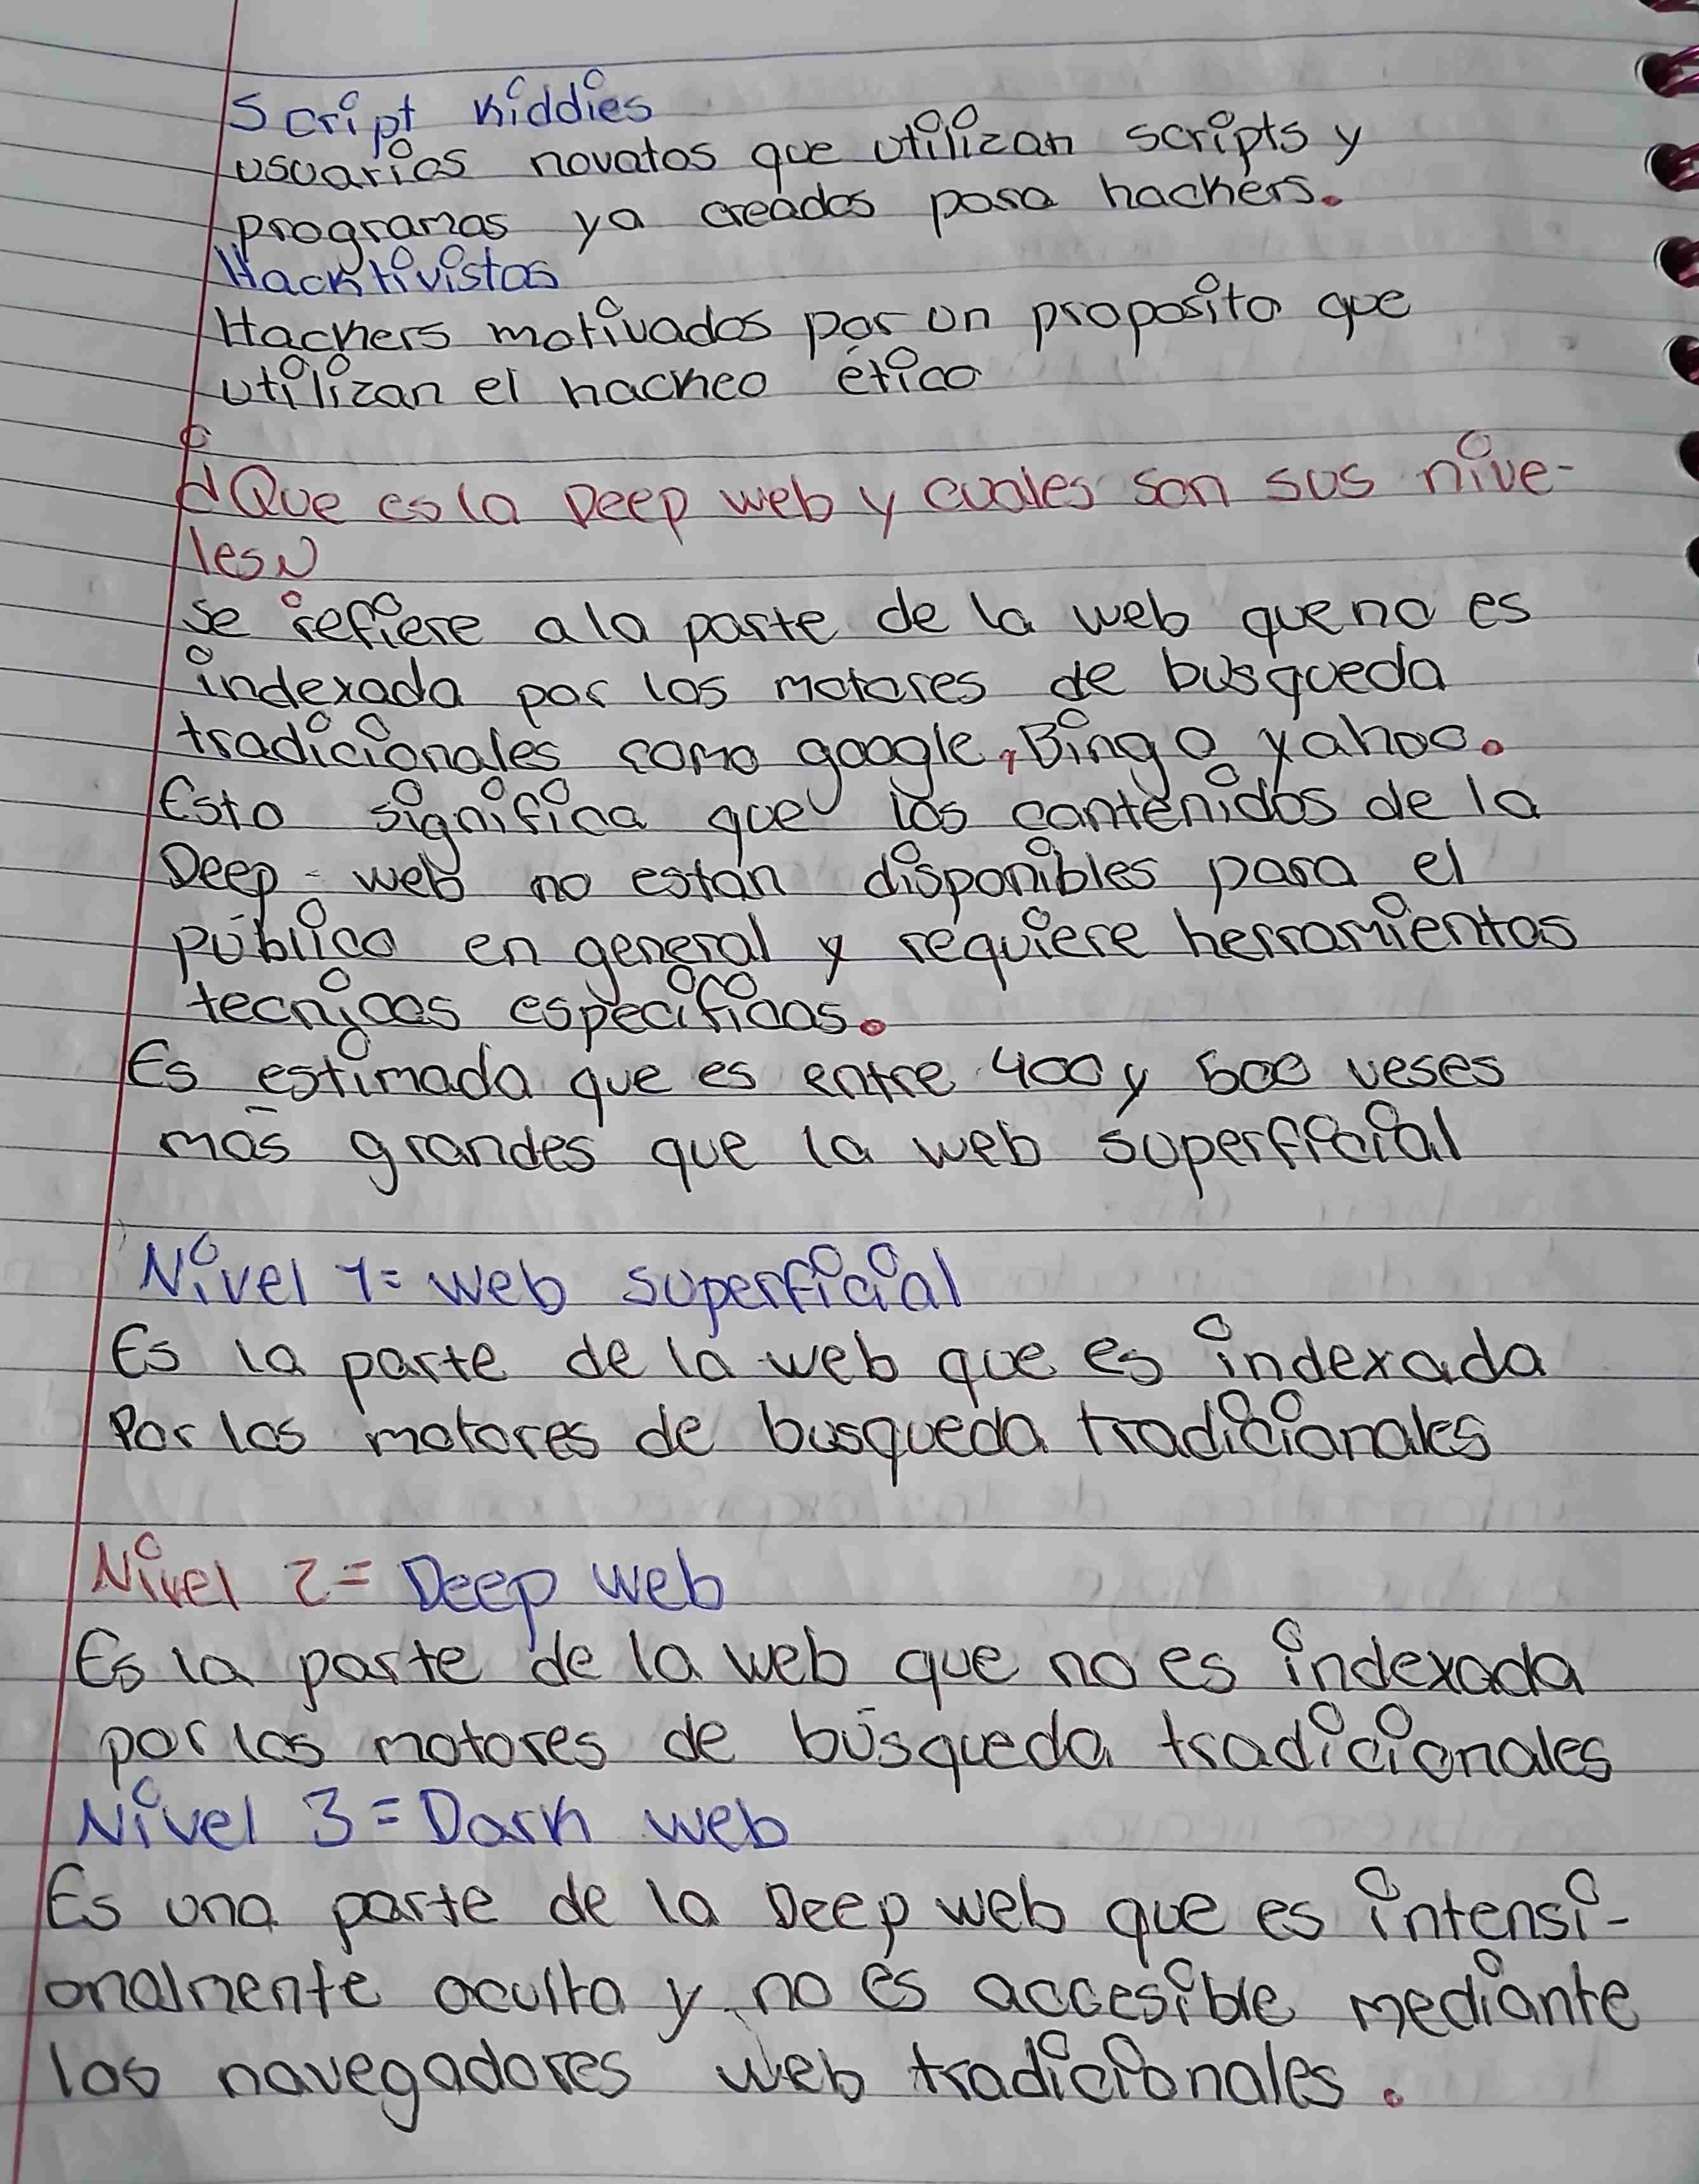 Script Kiddies
usuarios novatos que utilizan scripts y
programas ya creados para hackers.
Hacktivistas
Hackers motivados por un proposito que
utilizan el hackeo ético
¿Que es la Deep web y cuales son sus nive-
les?
se refiere a la parte de la web que no es
indexada por los motores de busqueda
tradicionales como google, Bing o yahoo.
Esto significa que los contenidos de la
Deep-web no están disponibles para el
público en general y requiere herramientas
tecnicas especificas.
Es estimada que es entre 400 y 600 veses
más grandes que la web superficial
Nivel 1= web superficial
Es la parte de la web que es indexada
Por los motores de busqueda tradicionales
Nivel 2= Deep web
Es la parte de la web que no es indexada
por los motores de búsqueda tradicionales
Nivel 3= Dark web
Es una parte de la Deep web que es intensi-
onalmente oculta y no es accesible mediante
los navegadores web tradicionales.